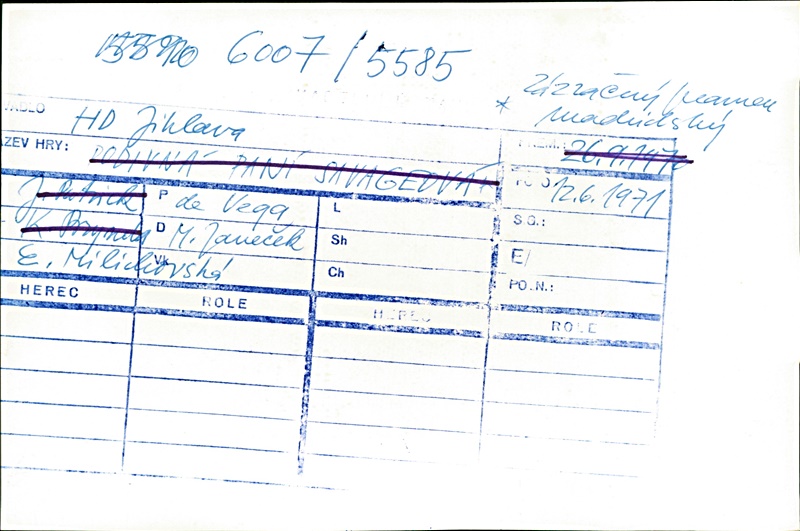 6007/5585
* Zázračný pramen
madridský
DIVADLO HD Jihlava
PREM.: 26.9.1970
NÁZEV HRY: PODIVNÁ PANÍ SAVAGEOVÁ
12.6.1971
J. Patrick P de Vega L S.G.:
D M. Janeček Sh E/
E. Milichovská Vk Ch PO.N.:
HEREC ROLE HEREC ROLE